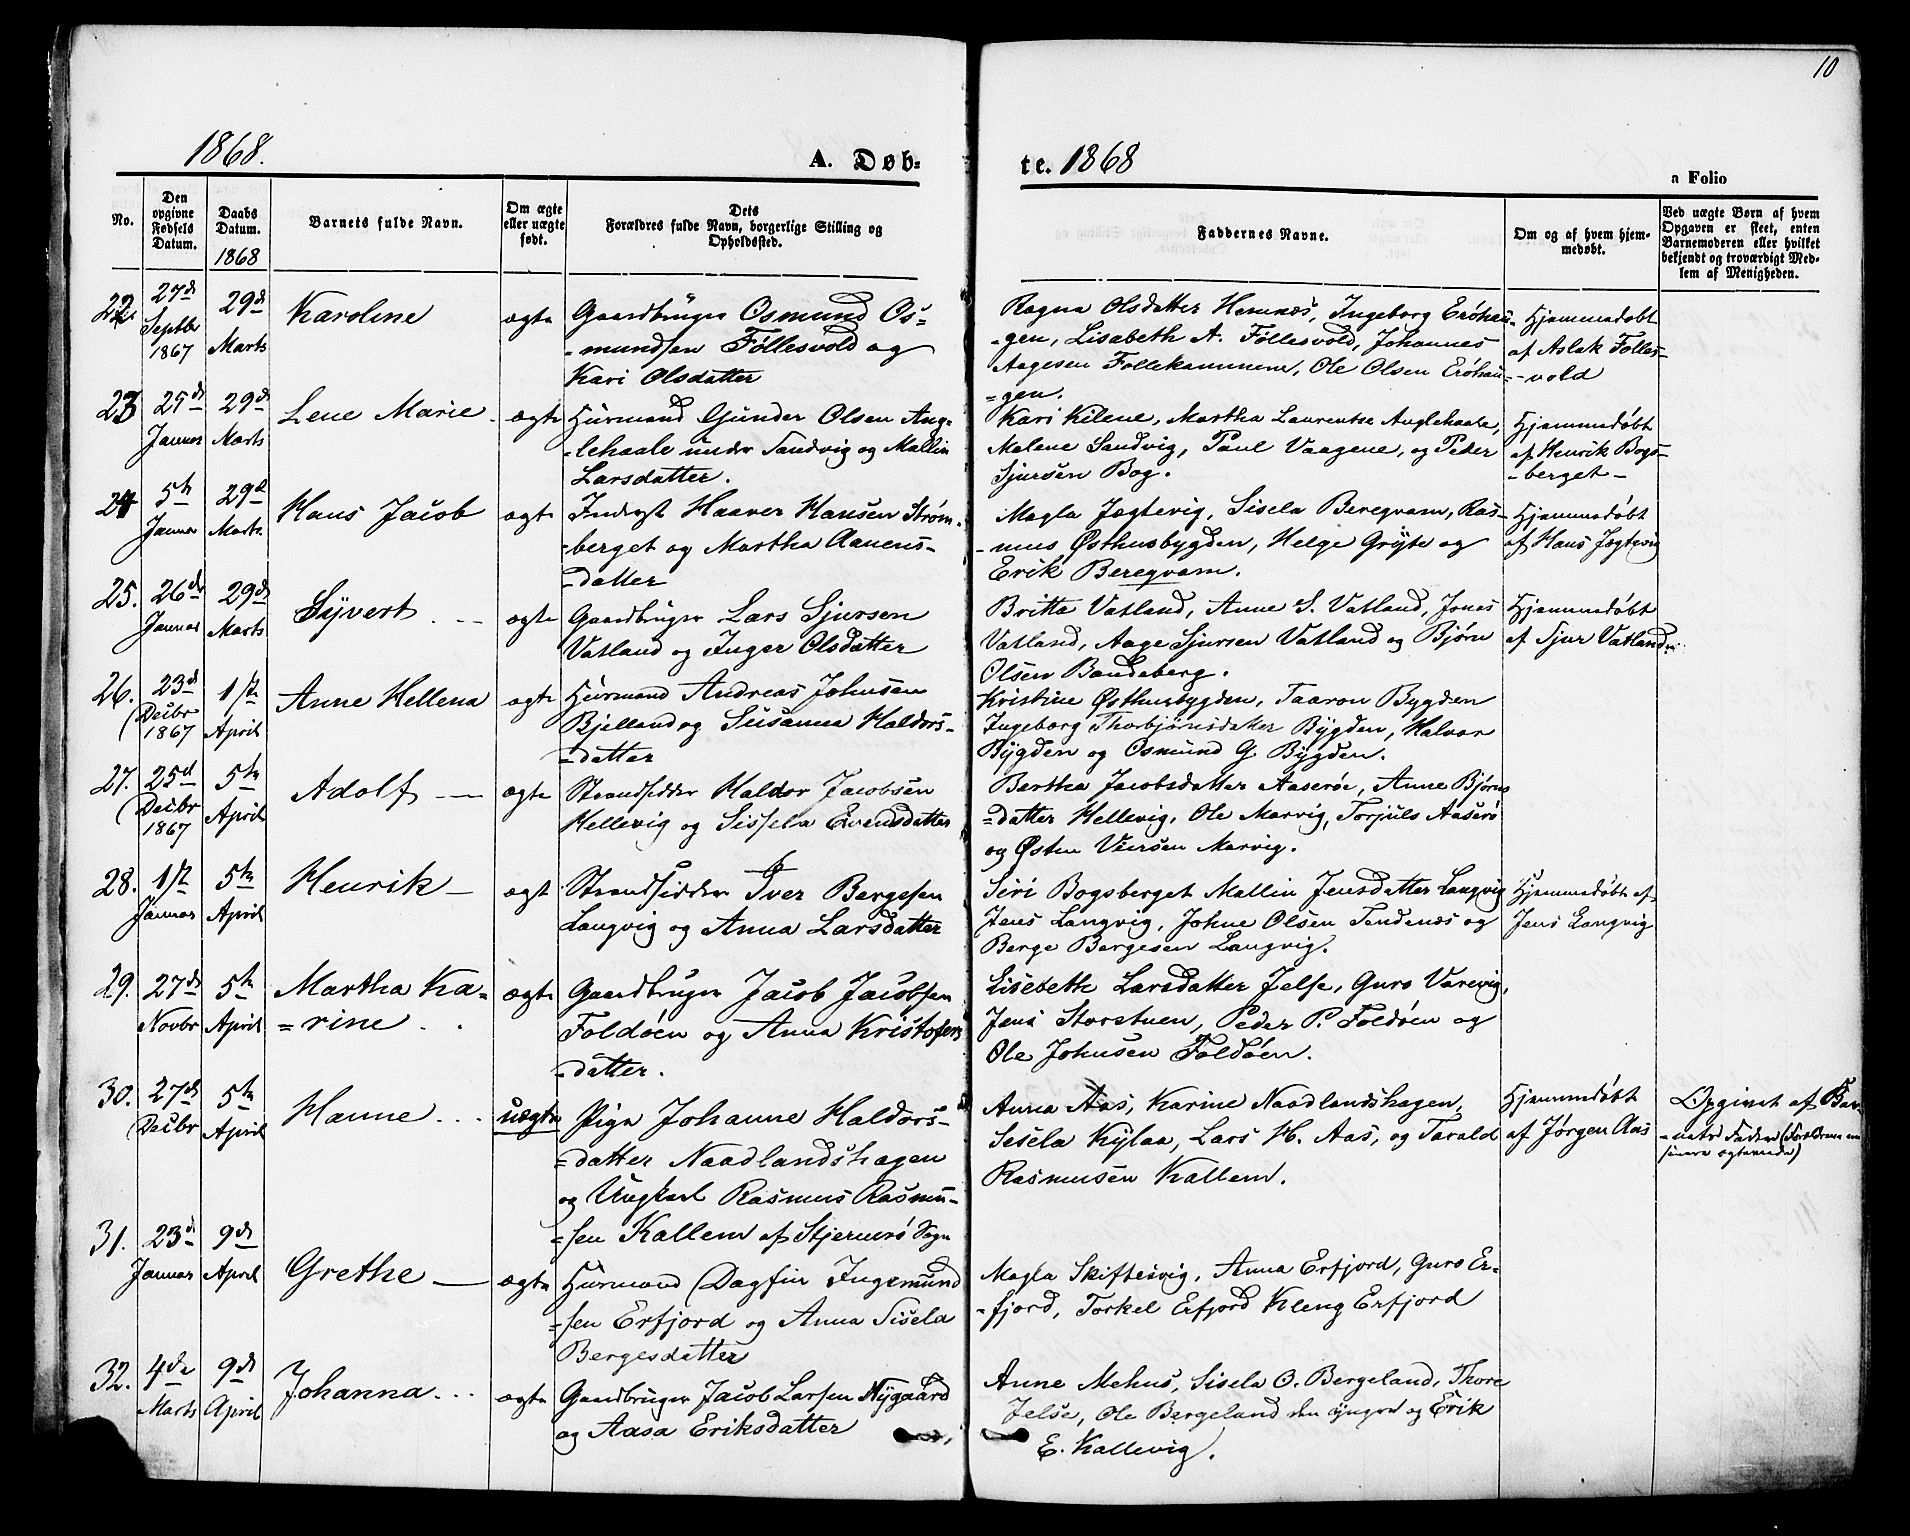 10
1868.
A. Døb-
te. 1868
a Folio
No.
Den opgivne Fødsels Datum.
Daabs Datum. 1868
Barnets fulde Navn.
Om ægte eller uægte født.
Dets Forældres fulde Navn, borgerlige Stilling og Opholdssted.
Faddernes Navne.
Om og af hvem hjemmedøbt.
Ved uægte Børn af hvem Opgaven er skeet, enten Barnemoderen eller hvilket bekjendt og troværdigt Medlem af Menigheden.
22 27de Septbr 1867 29de Marts Karoline ægte
Gaardbruger Osmund Os-
-mundsen Føllesvold og
Kari Olsdatter
Ragna Olsdatter Hemnæs, Ingeborg Erøhau-
-gen, Lisabeth A. Føllesvold, Johannes
Aagesen Follekammene, Ole Olsen Erøhau-
-gen.
Hjemmedøbt
af Aslak Følles-
-vold
23 25de Januar 29de Marts Lene Marie ægte
Huusmand Gunder Olsen Aug-
-lehaale under Sandvig og Mallin
Larsdatter.
Kari Kilene, Martha Laurentse Auglehaale,
Malene Sandvig, Paul Vaagene, og Peder
Sjursen Bog.
Hjemmedøbt
af Henrik Bogs-
-berget
24 5te Januar 29de Marts Hans Jacob ægte
Inderst Haaver Hansen Strøm-
-berget og Martha Aanens-
-datter
Magla Jægtevig, Sisela Beregvam, Ras-
-mus Østhusbygden, Helge Grÿte og
Erik Beregvam.
Hjemmedøbt
af Hans Jægtevig
25. 26de Januar 29de Marts Syvert ægte
Gaardbruger Lars Sjursen
Vatland og Inger Olsdatter
Britta Vatland, Anne S. Vatland, Jonas
Vatland, Aage Sjursen Vatland og Bjørn
Olsen Bandaberg.
Hjemmedøbt
af Sjur Vatland
26. 23de Decbr 1867 1ste April Anne Hellena ægte
Huusmand Andreas Johnsen
Bjelland og Susanna Haldors-
-datter
Kristine Østhusbygden, Taaron Bygden
Ingeborg Thorbjørnsdatter Bÿgden, Halvor
Bÿgden og Osmund G. Bÿgden.
27. 25de Decbr 1867 5te April Adolf ægte
Strandsidder Haldor Jacobsen
Hellevig og Sissela Evensdatter
Bertha Jacobsdatter Aaserøe, Anne Bjørns
-datter Hellevig, Ole Marvig, Torjuls Aaserø
og Østen Viersen Marvig.
28. 1ste Januar 5te April Henrik ægt
Strandsidder Iver Bergesen
Langvig og Anna Larsdatter
Siri Bogsberget Mallin Jensdatter Langvig
Jens Langvig, Johne Olsen Tendenæs og
Berge Bergesen Langvig.
Hjemmedøbt af
Jens Langvig
29. 27de Novbr 5te April Martha Ka-
-rine ægte
Gaardbruger Jacob Jacobsen
Foldøen og Anna Kristofers
-datter.
Lisebeth Larsdatter Jelse, Guro Varevig,
Jens Storstuen, Peder P. Foldøen og
Ole Johnsen Foldøen.
30. 27de Decbr 5te April Hanne uægte
Pige Johanne Haldors-
-datter Naadlandshagen
og Ungkarl Rasmus Rasmu-
-sen Kallem af Stjernerø Sogn
Anna Aas, Karine Naadlandshagen,
Sesela Kÿlaa, Lars H. Aas, og Tarald
Rasmusen Kallem.
Hjemmedøbt
af Jørgen Aas
Opgivet af Bar-
-nets Fader (Forældrene ere
senere ægteviede)
31. 23de Januar 9de April Grethe ægte
Huusmand Dagfin Ingemund
-sen Erfjord og Anna Sisela
Bergesdatter
Magla Skiftesvig, Anna Erfjord, Guro Er-
-fjord, Torkel Erfjord Kleng Erfjord
32. 4de Marts 9de April Johanna ægte
Gaardbruger Jacob Larsen Nÿgaard
og Aasa Eriksdatter
Anne Mehus, Sisela O. Bergeland, Thore
Jelse, Ole Bergeland den yngre og Erik
E. Kallevig.